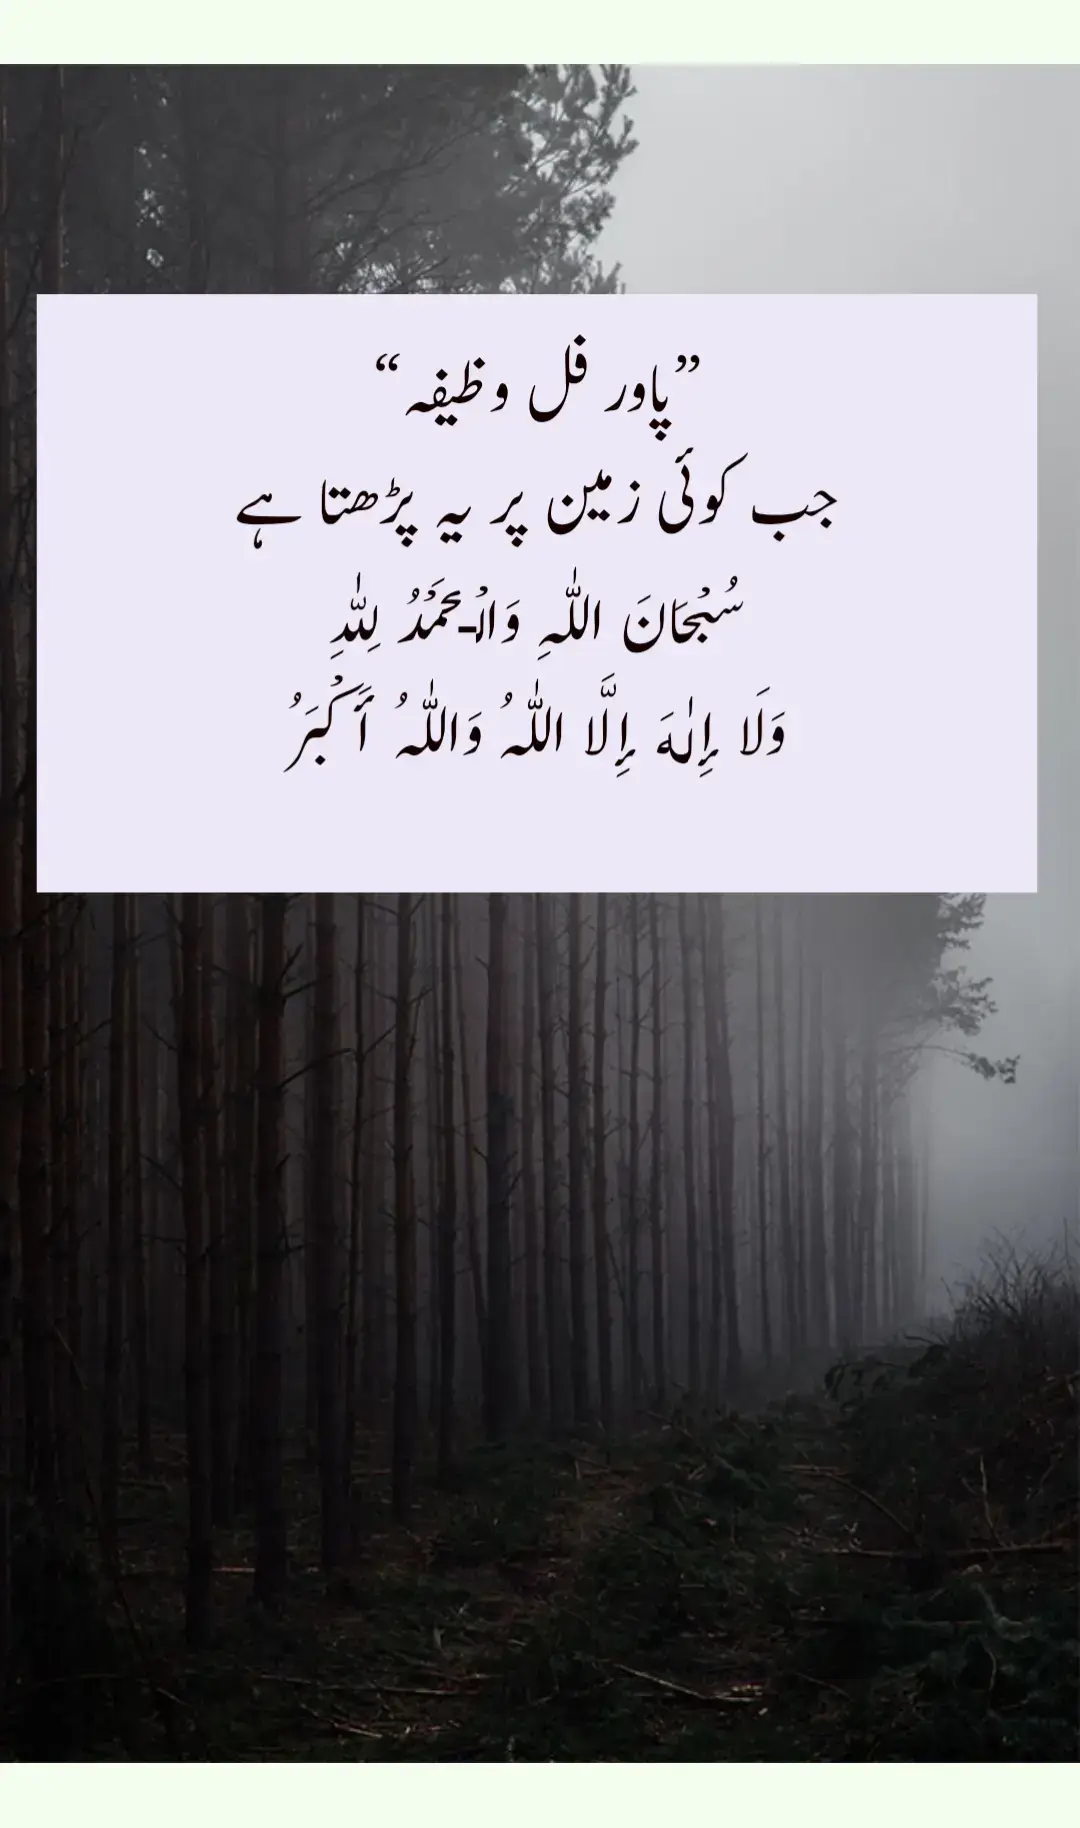 ”پاور فل وظیفہ“
جب کوئی زمین پر یہ پڑھتا ہے
سُبْحَانَ اللّٰہِ وَالْـحَمْدُ لِلّٰہِ
وَلَا إِلٰهَ إِلَّا اللّٰہُ وَاللّٰہُ أَکْبَرُ